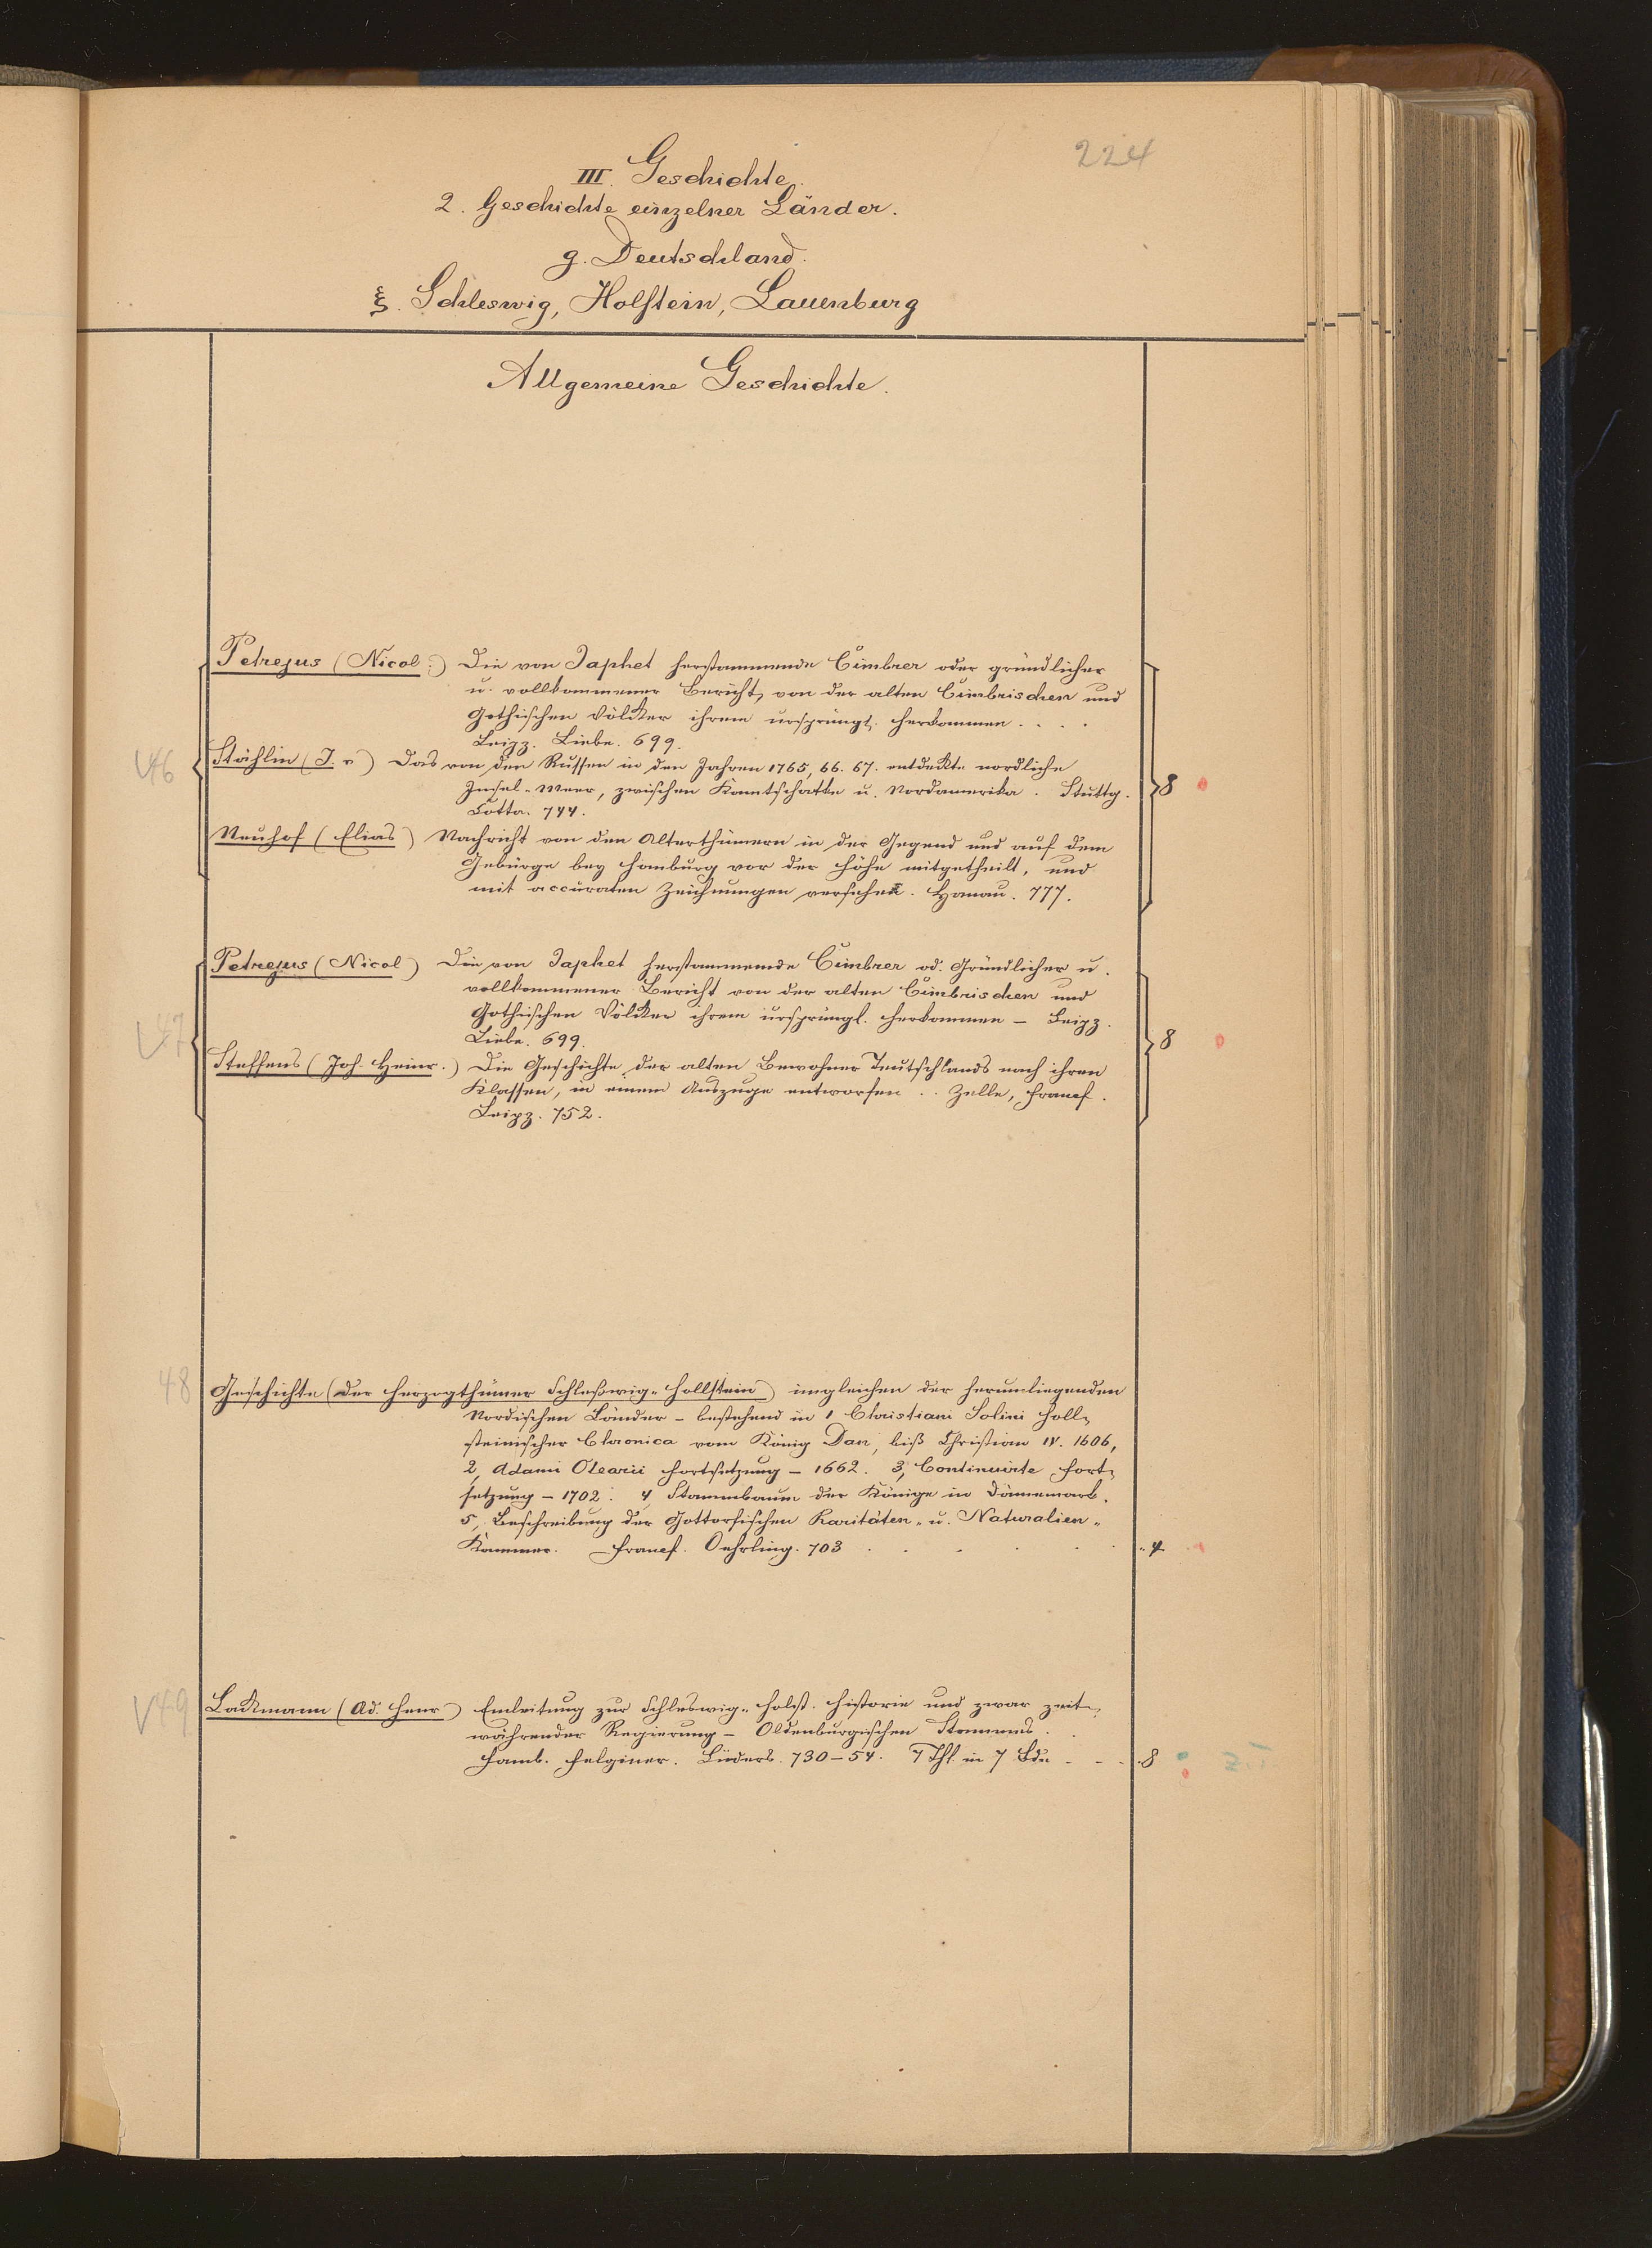 224
III. Geschichte.
2. Geschichte einzelner Länder.
g. Deutschland.
ξ. Schleswig, Holstein, Lauenburg
Allgemeine Geschichte.
Petrejus (Nicol:) Die von Japhet herstammende Cimbrer oder gründlicher
u. vollkommener Bericht, von der alten Cimbrischen und
Gothischen Völcker ihrem ursprüngl. herkommen . . . .
Leipz. Liebe. 699.
46 Stählin (J. v) Das von den Russen in den Jahren 1765, 66. 67. entdekte nordliche
Insel-Meer, zwischen Kamtschatka u. Nordamerika. Stuttg. 8
Cotta. 774.
Neuhof (Elias) Nachricht von den Alterthümern in der Gegend und auf dem
Gebürge bey Homburg vor der Höhe mitgetheilt, und
mit accuraten Zeichnungen versehen. Hanau. 777.
Petrejus (Nicol) Die von Japhet herstammende Cimbrer od. Gründlicher u.
vollkommener Bericht von der alten Cimbrischen und
Gothischen Völcker ihrem ursprüngl. herkommen – Leipz.
47 Liebe. 699. 8
Steffens (Joh. Heinr.) Die Geschichte der alten Bewohner Teutschlands nach ihren
Klassen, in einem Auszuge entworfen . . Zelle, Francf.
Leipz. 752.
48 Geschichte (der Herzogthümer Schleßwig-Hollstein) imgleichen der herumliegenden
Nordischen Länder – bestehend in 1 Christiani Solini Holl-
steinischer Chronica vom König Dan, biß Christian IV. 1606,
2, Adami Olearii Fortsetzung – 1662. 3, Continuirte Fort-
setzung – 1702. 4 Stammbaum der Könige in Dännemark.
5, Beschreibung der Gottorfischen Raritäten- u. Naturalien-
Kammer. Francf. Oehrling. 703 . . . . . 4
49 Lackmann (Ad. Henr) Einleitung zur Schleswig-Holst. Historie und zwar zeit-
währender Regierung – Oldenburgischen Stammes.
Hamb. Felginer. Lüders. 730–54. 7 Thl. in 7 Bdn - - - 8